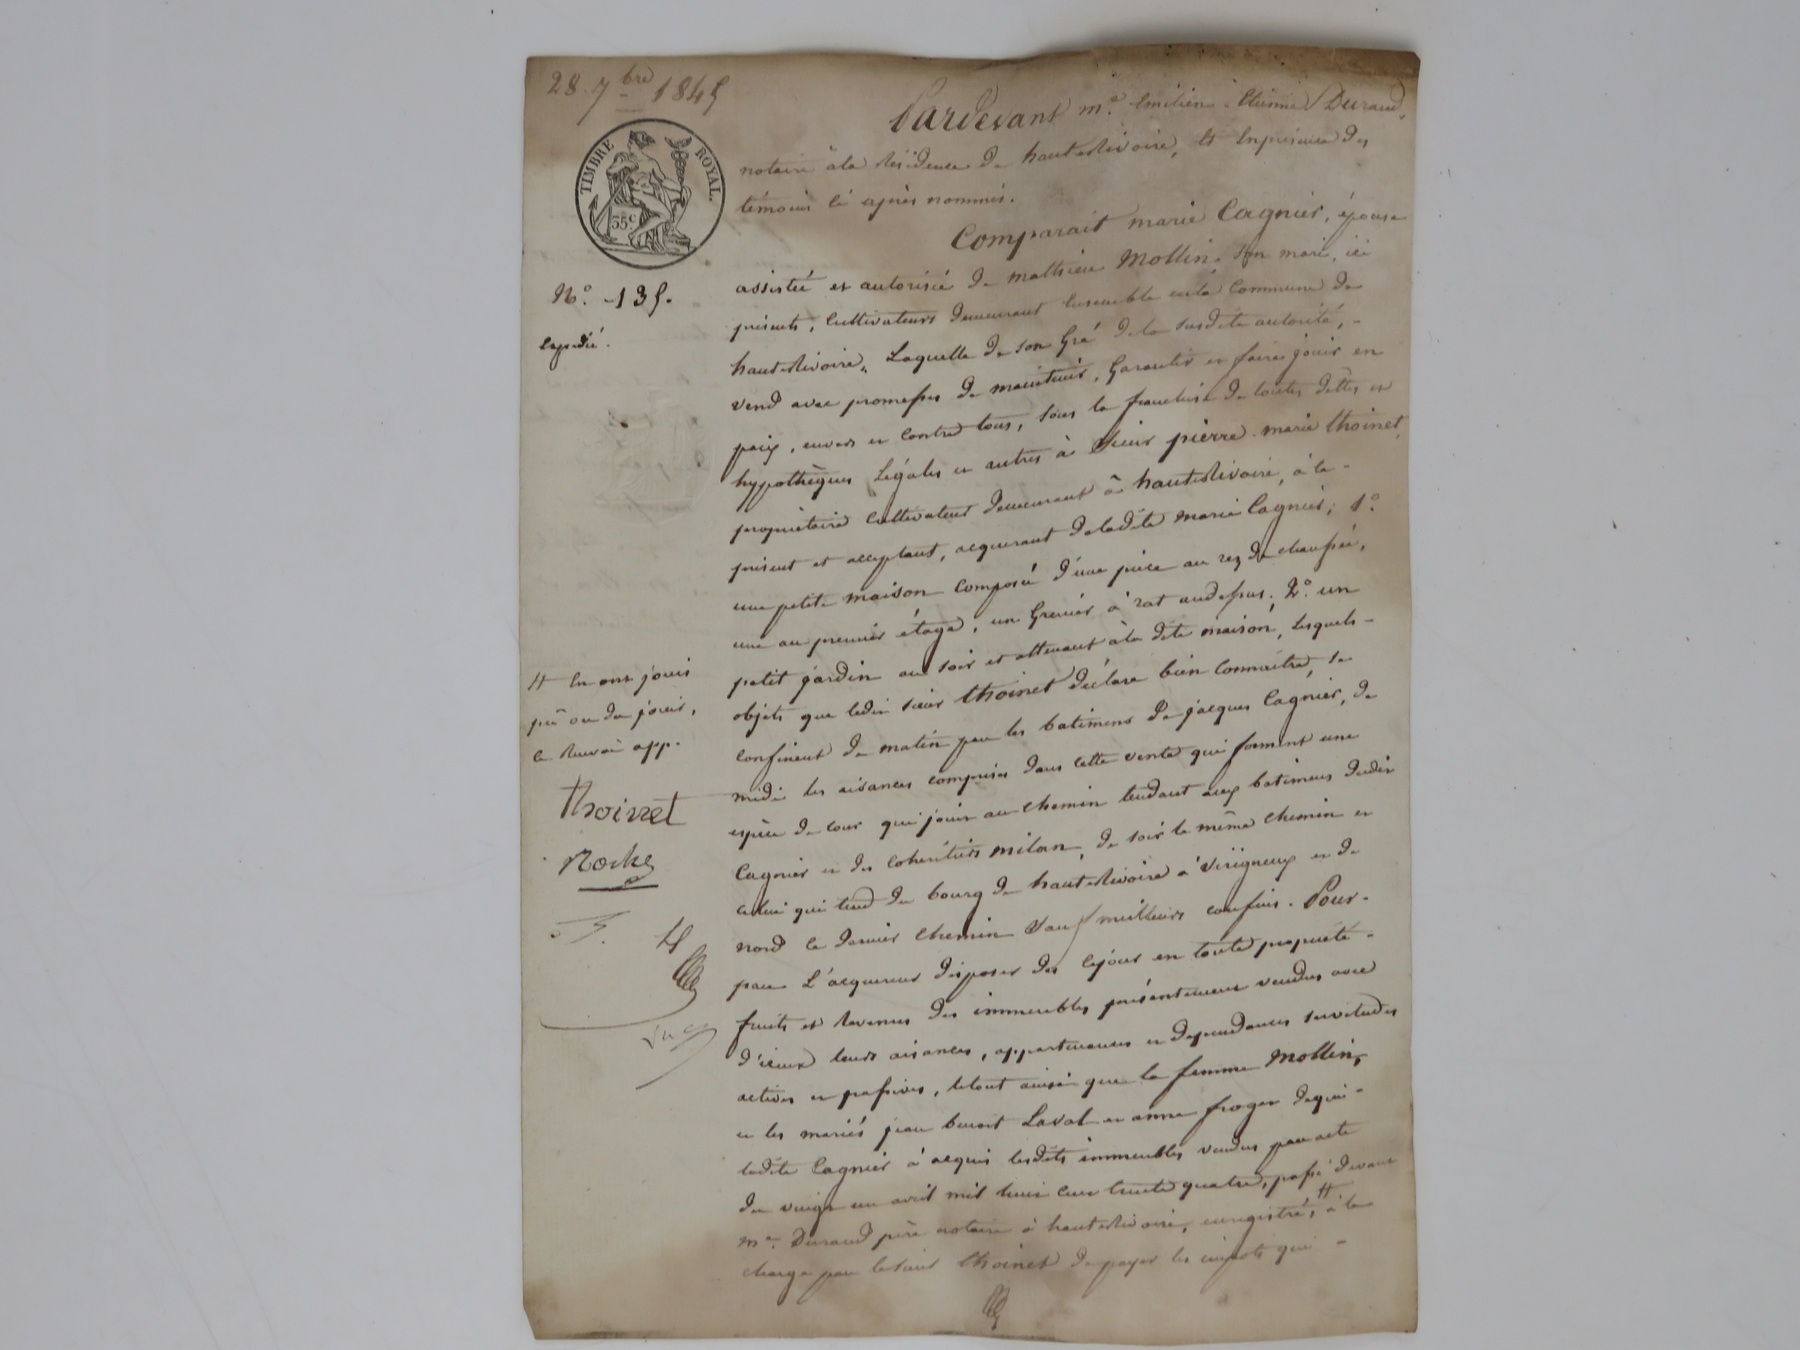 28 7bre 1845
TIMBRE ROYAL.
35c
No. 135.
Expédié.
Pardevant me. Emilien Etienne Durand,
notaire à la résidence de hauterivoire, et En présence des
témoins ci après nommés.
Comparait marie Cagnier, épouse
assistée et autorisée de mathieu Mollin son mari, ici
présents, Cultivateurs demeurant Ensemble en la Commune de
hauterivoire, Laquelle de son Gré de la susdite autorité, -
vend avec promesses de maintenir, Garantir et faire jouir en
paix, envers et Contre tous, sous la franchise de toutes dettes et
hypothèques Légales et autres à Sieur pierre marie thoinet,
propriétaire Cultivateur demeurant à hauterivoire, à ce -
présent et acceptant, acquerant de ladite marie Cagnier; 1o.
une petite maison Composée d'une pièce au rez de chaussée,
une au premier étage, un Grenier à rat audessus; 2o. un
petit jardin au soir et attenant à la dite maison, Lesquels -
objets que ledit sieur thoinet déclare bien Connaitre, se
confinent de matin par les batimens de jacques Cagnier, de
midi les aisances comprises dans Cette vente qui forment une
espèce de cour qui joint au Chemin tendant aux batimens dudit
Cagnier et des Cohéritiers milan, de soir le même Chemin et
celui qui tend du bourg de hauterivoire à Virigneux et de
nord ce dernier Chemin Sauf meilleurs confins. Pour -
par L'acquereur disposer dès Cejour en toute propriété -
fruits et revenus des immeubles présentement vendus avec
d'iceux leurs aisances, appartenances et dependances servitudes
actives et passives, letout ainsi que la femme Mollin,
et les mariés jean benoit Laval et anne froger dequi -
ladite Cagnier à acquis lesdits immeubles vendus par acte
du vingt un avril mil huit cent trente quatre, passé devant
me. Durand père notaire à hauterivoire, enregistré, # à la
charge par lesieur thoinet de payer les impots qui -
# En ont joui
pû ou du jouir,
ce renvoi app.
thoinet
Roche